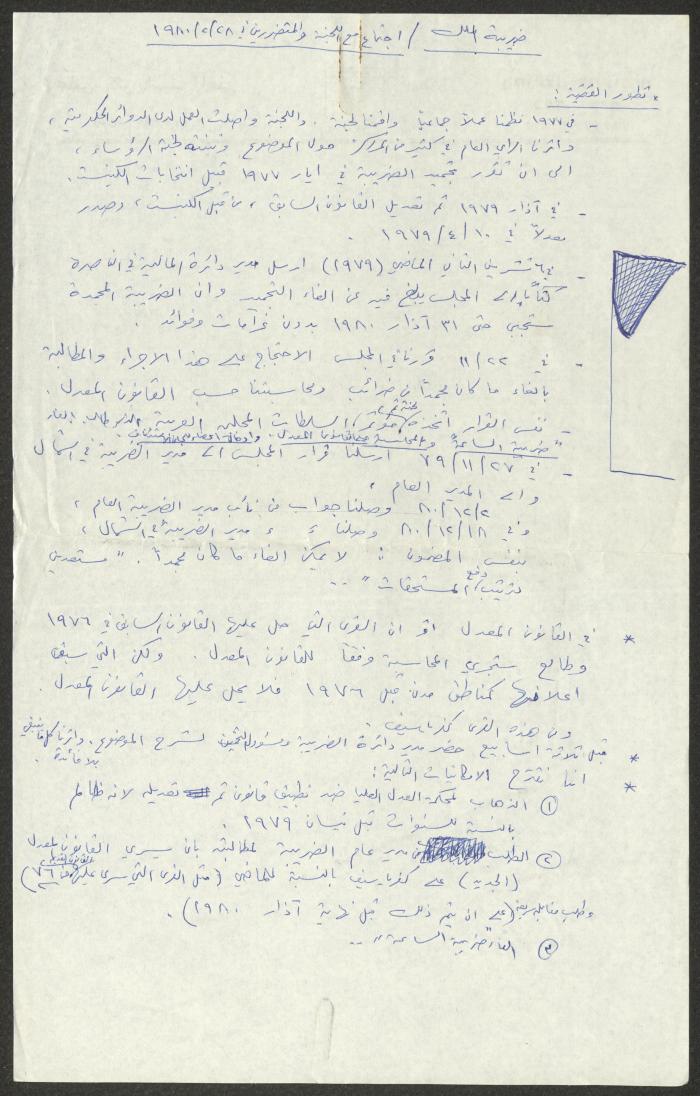 ضريبة الملك / اجتماع مع اللجنة والمتضررين في ٢٨/٢/١٩٨٠
* تطور القضية :
- في ١٩٧٧ نظمنا عملاً جماعياً واقمنا لجنة . واللجنة واصلت العمل لدى الدوائر الحكومية ،
واثرنا الرأي العام في كثير من المراكز حول الموضوع وتبنته لجنة الرؤساء ،
الى ان تقرر تجميد الضريبة في ايار ١٩٧٧ قبل انتخابات الكنيست .
- في آذار ١٩٧٩ تم تعديل القانون السابق ، من قبل الكنيست ، وصدر
معدلاً في ١٠/٤/١٩٧٩ .
- في ٦ تشرين الثاني الماضي (١٩٧٩) ارسل مدير دائرة المالية في الناصرة
كتاباً الى المجلس يبلغ فيه عن الغاء التجميد وان الضريبة المجمدة
ستجبى حتى ٣١ آذار ١٩٨٠ بدون غرامات وفوائد .
- في ٢٢/١١ قررنا في المجلس الاحتجاج على هذا الاجراء والمطالبة
بالغاء ما كان مجمداً من ضرائب ومحاسبتنا حسب القانون المعدل .
- نفس القرار اتخذه مؤتمر السلطات المحلية العربية الذي طالب الغاء
"ضريبة الساعة" والمحاسبة حسب القانون المعدل .
- في ٢٧/١١/٧٩ ارسلنا قرار المجلس الى مدير الضريبة في الشمال
والى المدير العام ،
٢/١٢/٨٠ وصلنا جواب من نائب مدير الضريبة العام ،
وفي ١٨/١٢/٨٠ وصلنا ء ء مدير الضريبة في الشمال ،
بنفس المضمون : لا يمكن الغاء ما كان مجمداً . "مستعدين
لترتيب دفع المستحقات" ..
* في القانون المعدل اقر ان القرى التي حل عليها القانون السابق في ١٩٧٦
وطالع ستجري المحاسبة وفقاً للقانون المعدل . ولكن التي سبق
اعلانها كمناطق مدن قبل ١٩٧٦ فلا يحل عليها القانون المعدل .
ومن هذه القرى كفرياسيف .
* قبل ثلاثة اسابيع حضر مدير دائرة الضريبة ومسؤول التخمين لشرح الموضوع . واثرنا كل
بلا فائدة .
* اننا نقترح الامكانيات التالية :
① الذهاب لمحكمة العدل العليا ضد تطبيق قانون تم تعديله لانه ظالم
بالنسبة للسنوات قبل نيسان ١٩٧٩ .
② الطلب من مدير عام الضريبة لمطالبته بان يسري القانون المعدل
(الجديد) على كفرياسيف بالنسبة للماضي (مثل القرى التي سرى عليها القانون القديم في ٧٦)
وطلب مقابلة سريعة (على ان يتم ذلك قبل نهاية آذار ١٩٨٠) .
③ الغاء "ضريبة الساعة" ..